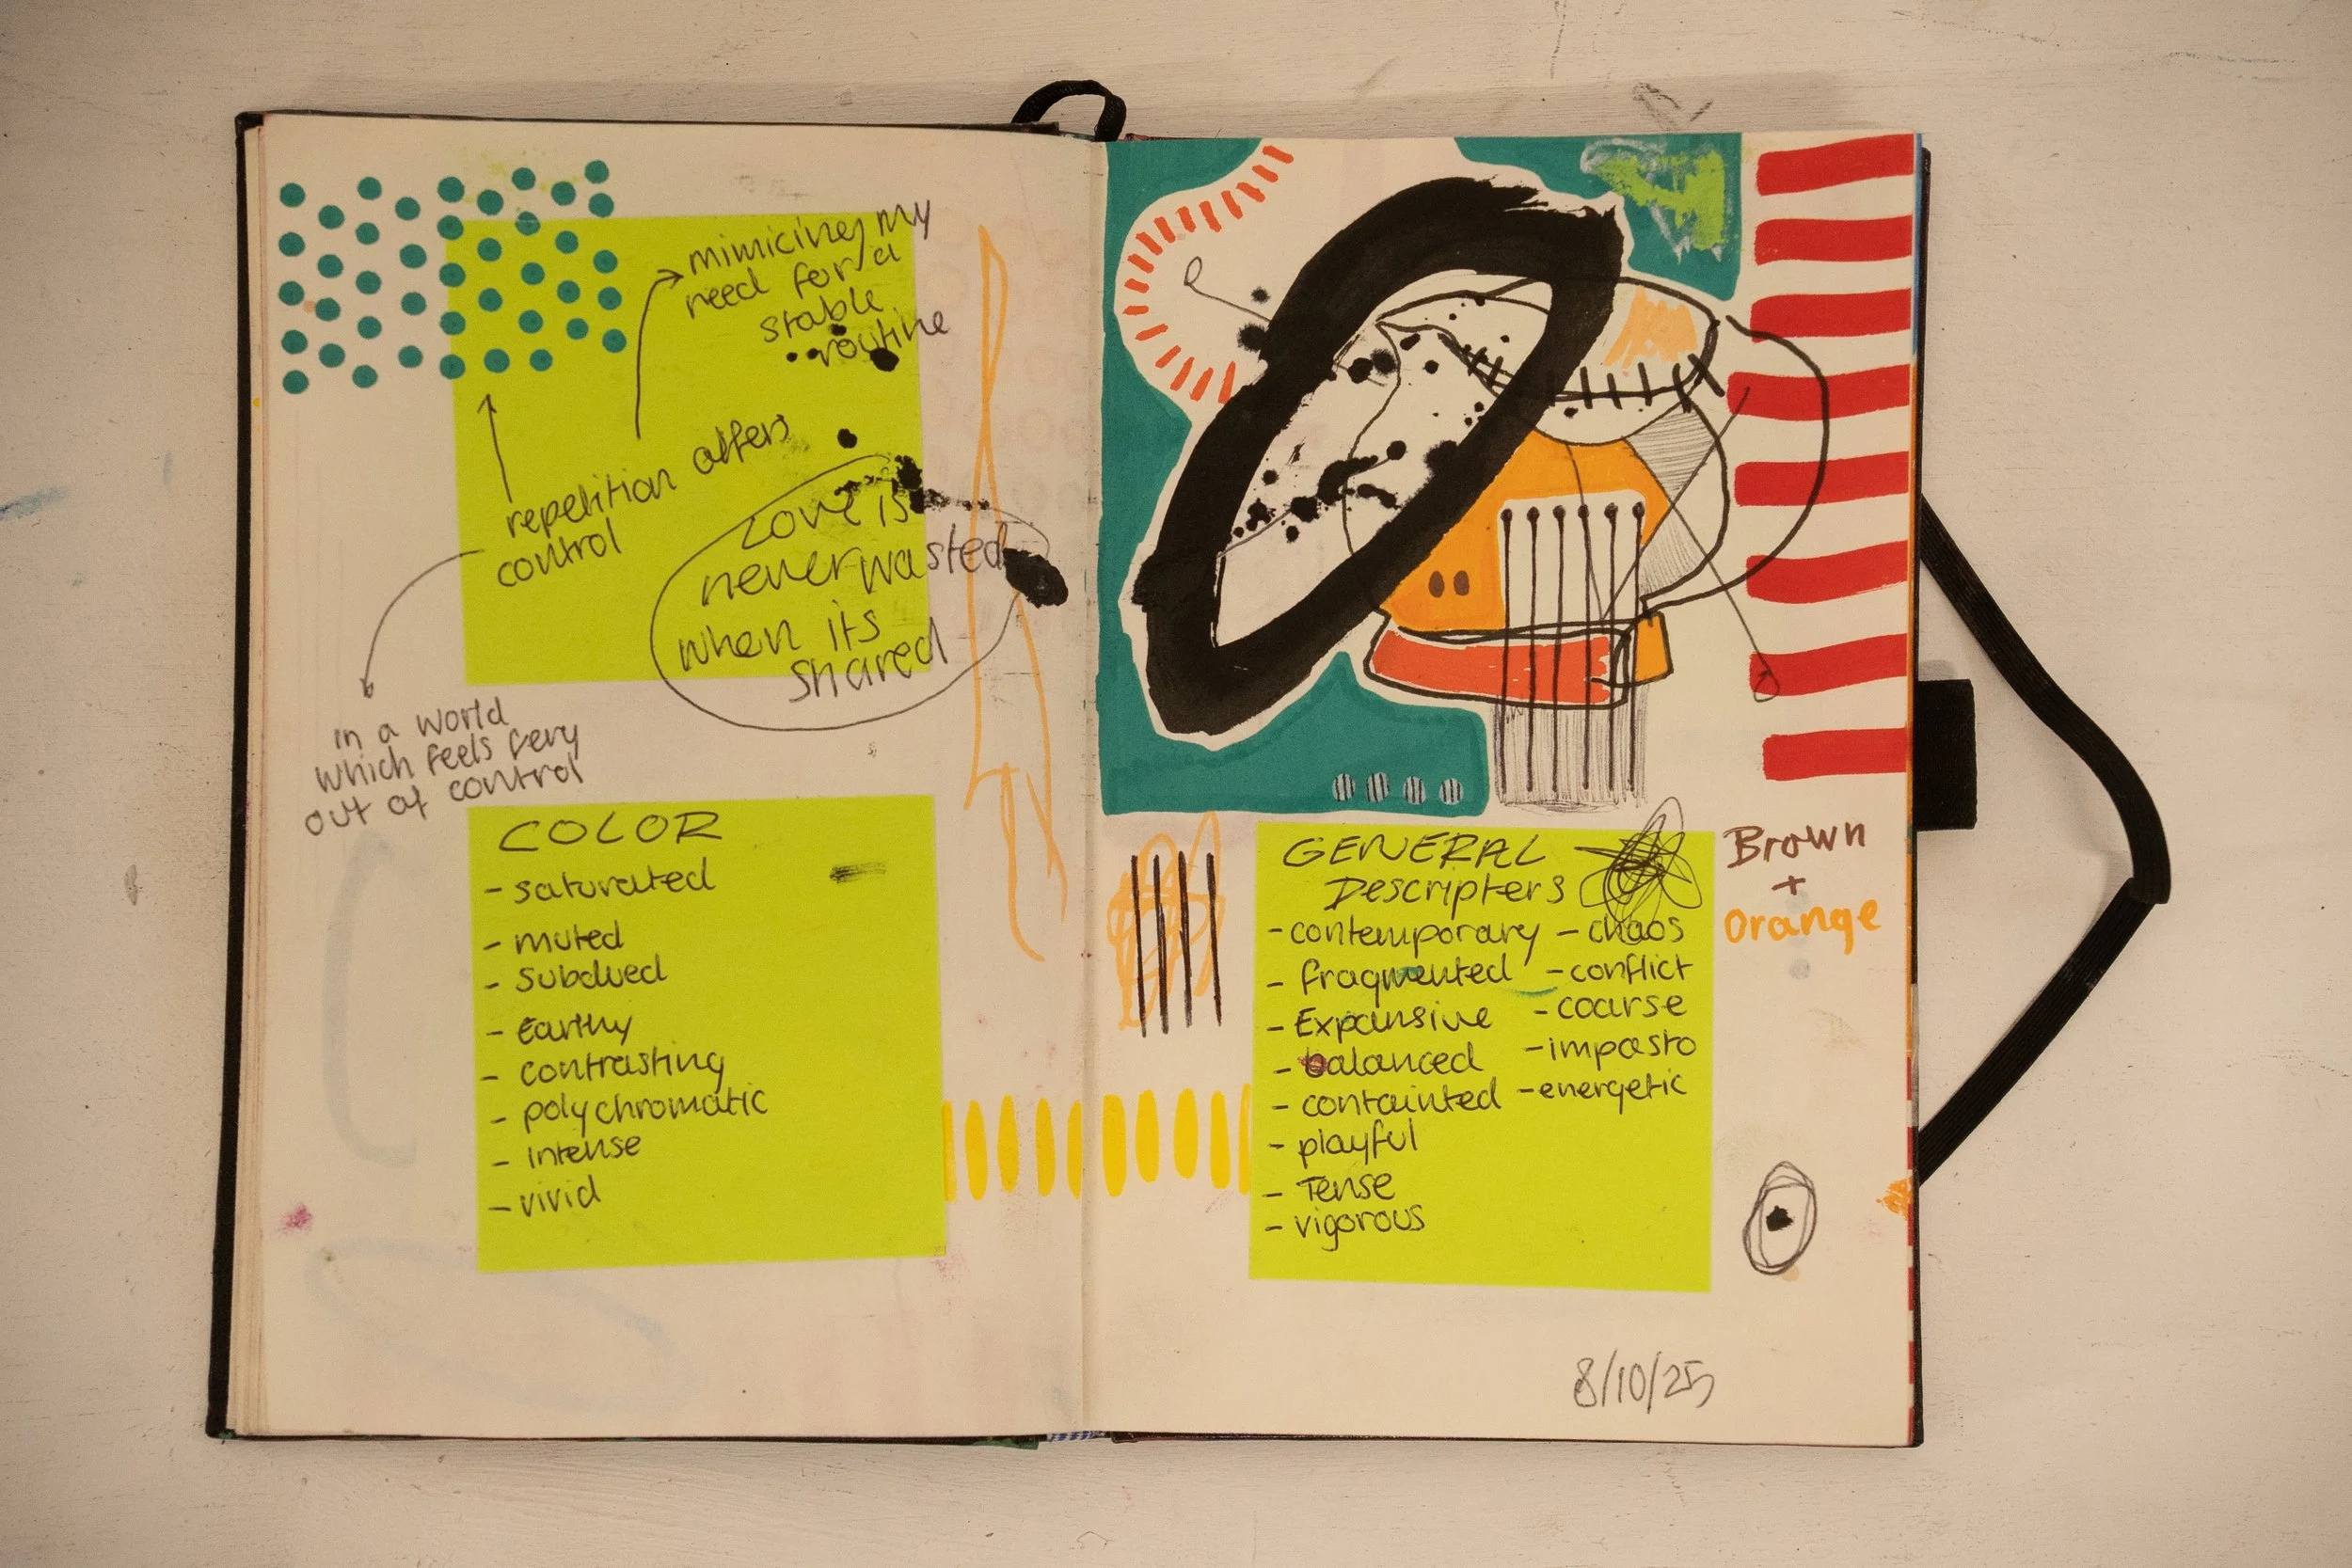 mimicing my
need for a
stable
routine
repetition offers
control
Love is
never wasted
when its
shared
in a world
which feels very
out of control
COLOR
- saturated
- muted
- subdued
- Earthy
- contrasting
- polychromatic
- intense
- vivid
GENERAL
Descripters
- contemporary
- fragmented
- Expansive
- balanced
- containted
- playful
- Tense
- vigorous
- chaos
- conflict
- coarse
- impasto
- energetic
Brown
+
Orange
8/10/25